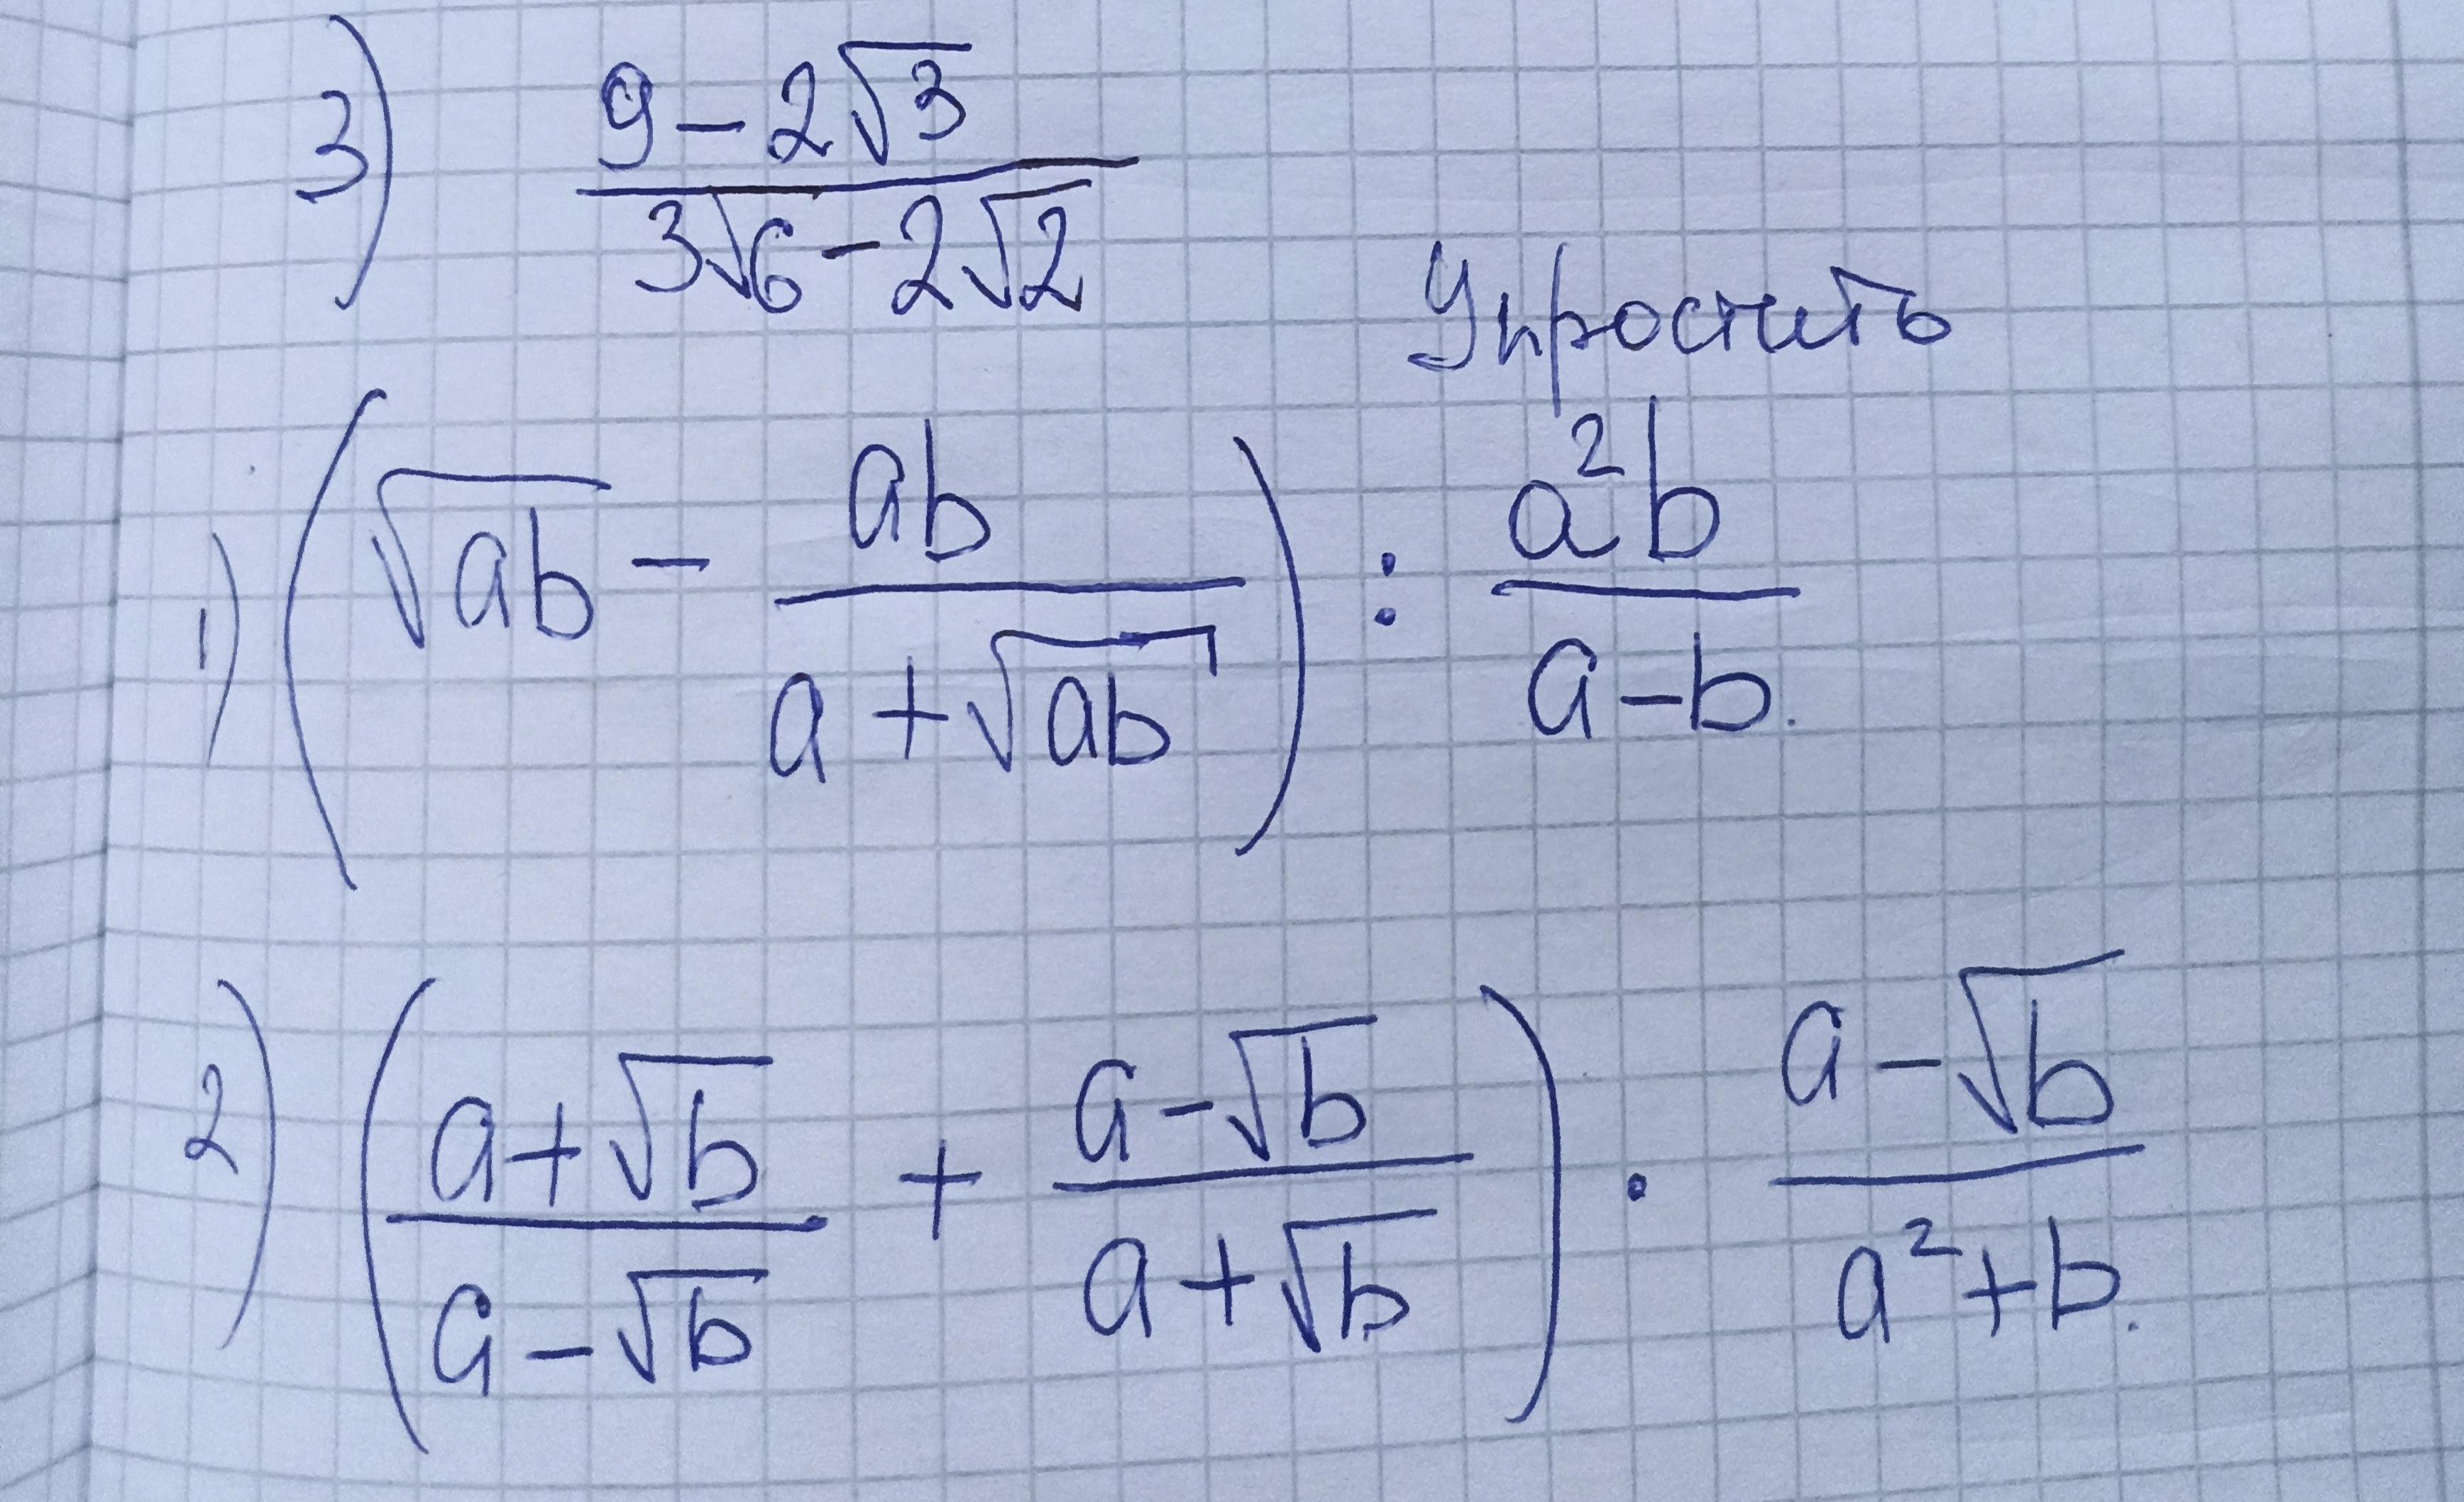 3) (9 - 2√3)/(3√6 - 2√2)
Упростить
1) (√ab - ab/(a + √ab)) : a²b/(a - b).
2) ((a + √b)/(a - √b) + (a - √b)/(a + √b)) · (a - √b)/(a² + b).